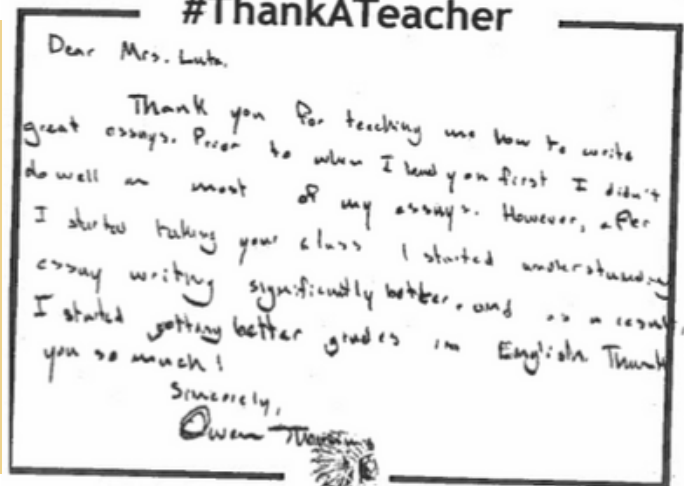 #ThankATeacher
Dear Mrs. Luta,
Thank you for teaching me how to write
great essays. Prior to when I had you first I didn't
do well on most of my essays. However, after
I started taking your class I started understanding
essay writing significantly better, and as a result,
I started getting better grades in English. Thank
you so much!
Sincerely,
Owen